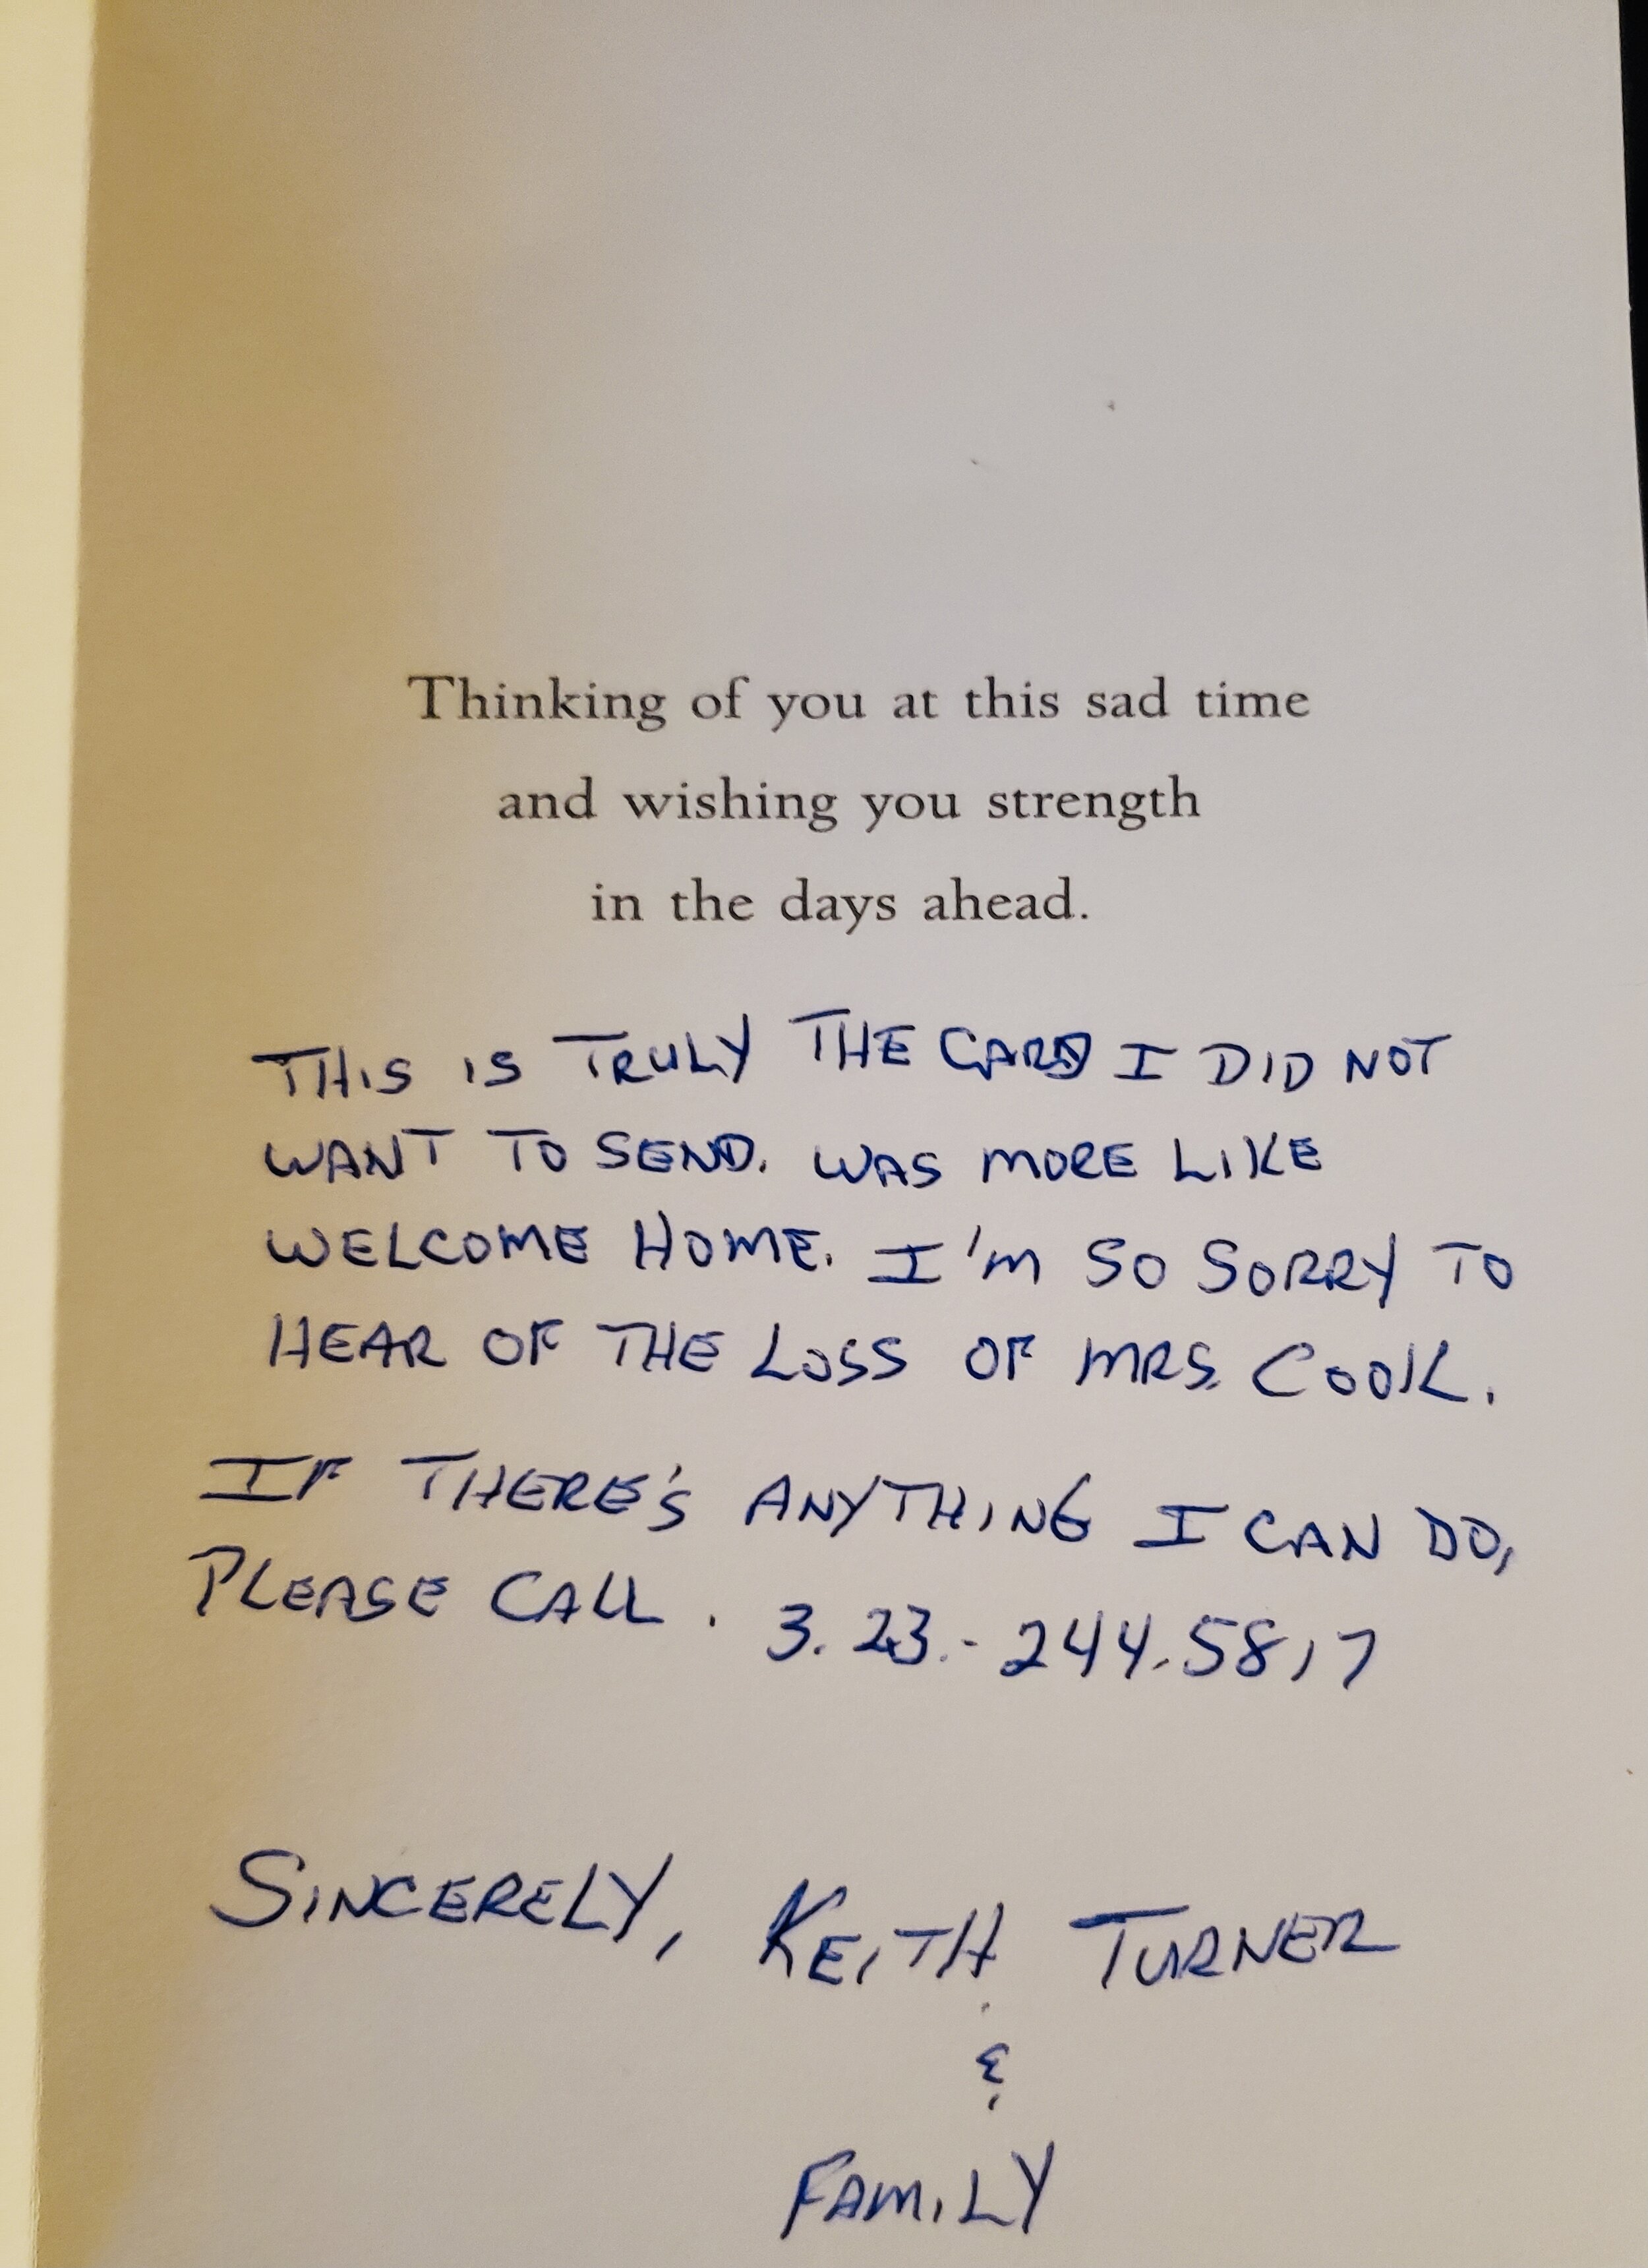 Thinking of you at this sad time
and wishing you strength
in the days ahead.
THIS IS TRULY THE CARD I DID NOT
WANT TO SEND. WAS MORE LIKE
WELCOME HOME. I'M SO SORRY TO
HEAR OF THE LOSS OF MRS. COOK.
IF THERE'S ANYTHING I CAN DO,
PLEASE CALL. 3.23.-244.5817
SINCERELY, KEITH TURNER
&
FAMILY